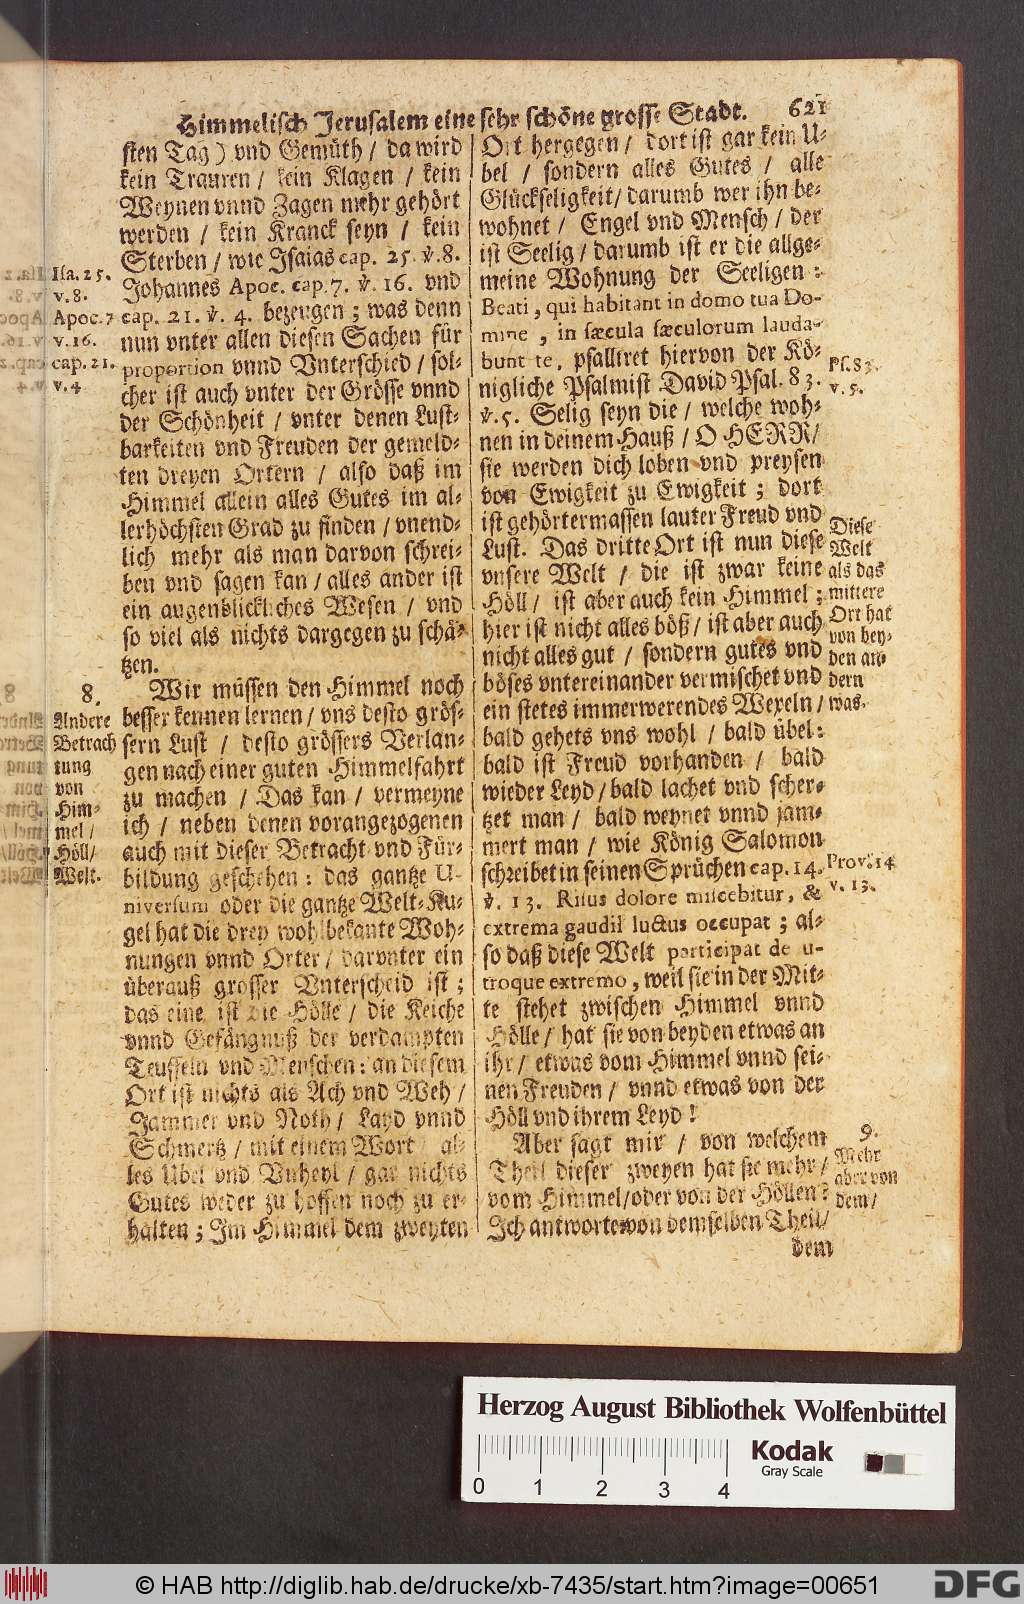 Himmelisch Jerusalem eine sehr schöne grosse Stadt. 621
sten Tag) vnd Gemüth / da wird
kein Trauren / kein Klagen / kein
Weynen vnnd Zagen mehr gehört
werden / kein Kranck seyn / kein
Sterben / wie Isaias cap. 25. ꝟ. 8.
Johannes Apoc. cap. 7. ꝟ. 16. vnd
cap. 21. ꝟ. 4. bezeugen ; was denn
nun vnter allen diesen Sachen für
proportion vnnd Vnterschied / sol-
cher ist auch vnter der Grösse vnnd
der Schönheit / vnter denen Lust-
barkeiten vnd Freuden der gemeld-
ten dreyen Ortern / also daß im
Himmel allein alles Gutes im al-
lerhöchsten Grad zu finden / vnend-
lich mehr als man darvon schrei-
ben vnd sagen kan / alles ander ist
ein augenblickliches Wesen / vnd
so viel als nichts dargegen zu schä-
tzen.
Wir müssen den Himmel noch
besser kennen lernen / vns desto grös-
sern Lust / desto grössers Verlan-
gen nach einer guten Himmelfahrt
zu machen / Das kan / vermeyne
ich / neben denen vorangezogenen
auch mit dieser Betracht vnd Für-
bildung geschehen : das gantze U-
niversum oder die gantze Welt-Ku-
gel hat die drey wohlbekante Woh-
nungen vnnd Orter / darvnter ein
überauß grosser Vnterscheid ist ;
das eine ist die Hölle / die Keiche
vnnd Gefängnuß der verdampten
Teuffeln vnd Menschen : an diesem
Ort ist nichts als Ach vnd Weh /
Jammer vnd Noth / Layd vnnd
Schmertz / mit einem Wort / al-
les Ubel vnd Vnheyl / gar nichts
Gutes weder zu hoffen noch zu er-
halten ; Im Himmel dem zweyten
Isa. 25.
v. 8.
Apoc. 7
v. 16.
cap. 21.
v. 4
8.
Andere
Betrach
tung
von
Him-
mel /
Höll /
Welt.
Ort hergegen / dort ist gar kein U-
bel / sondern alles Gutes / alle
Glückseligkeit / darumb wer ihn be-
wohnet / Engel vnd Mensch / der
ist Seelig / darumb ist er die allge-
meine Wohnung der Seeligen :
Beati, qui habitant in domo tua Do-
mine, in sæcula sæculorum lauda-
bunt te, psalliret hiervon der Kö-
nigliche Psalmist David Psal. 83.
ꝟ. 5. Selig seyn die / welche woh-
nen in deinem Hauß / O HERR /
sie werden dich loben vnd preysen
von Ewigkeit zu Ewigkeit ; dort
ist gehörtermassen lauter Freud vnd
Lust. Das dritte Ort ist nun diese
vnsere Welt / die ist zwar keine
Höll / ist aber auch kein Himmel ;
hier ist nicht alles böß / ist aber auch
nicht alles gut / sondern gutes vnd
böses vntereinander vermischet vnd
ein stetes immerwerendes Wexeln /
bald gehets vns wohl / bald übel :
bald ist Freud vorhanden / bald
wieder Leyd / bald lachet vnd scher-
tzet man / bald weynet vnnd jam-
mert man / wie König Salomon
schreibet in seinen Sprüchen cap. 14.
ꝟ. 13. Risus dolore miscebitur, &
extrema gaudii luctus occupat ; al-
so daß diese Welt participat de u-
troque extremo, weil sie in der Mit-
te stehet zwischen Himmel vnnd
Hölle / hat sie von beyden etwas an
ihr / etwas vom Himmel vnnd sei-
nen Freuden / vnnd etwas von der
Höll vnd ihrem Leyd !
Aber sagt mir / von welchem
Theil dieser zweyen hat sie mehr /
vom Himmel / oder von der Höllen ?
Ich antworte von demselben Theil /
dem
Ps. 83.
v. 5.
Diese
Welt
als das
mittere
Ort hat
von bey-
den an-
dern
was.
Prov. 14
v. 13.
9.
Mehr
aber von
dem /
Herzog August Bibliothek Wolfenbüttel
Kodak
Gray Scale
0 1 2 3 4
© HAB http://diglib.hab.de/drucke/xb-7435/start.htm?image=00651
DFG